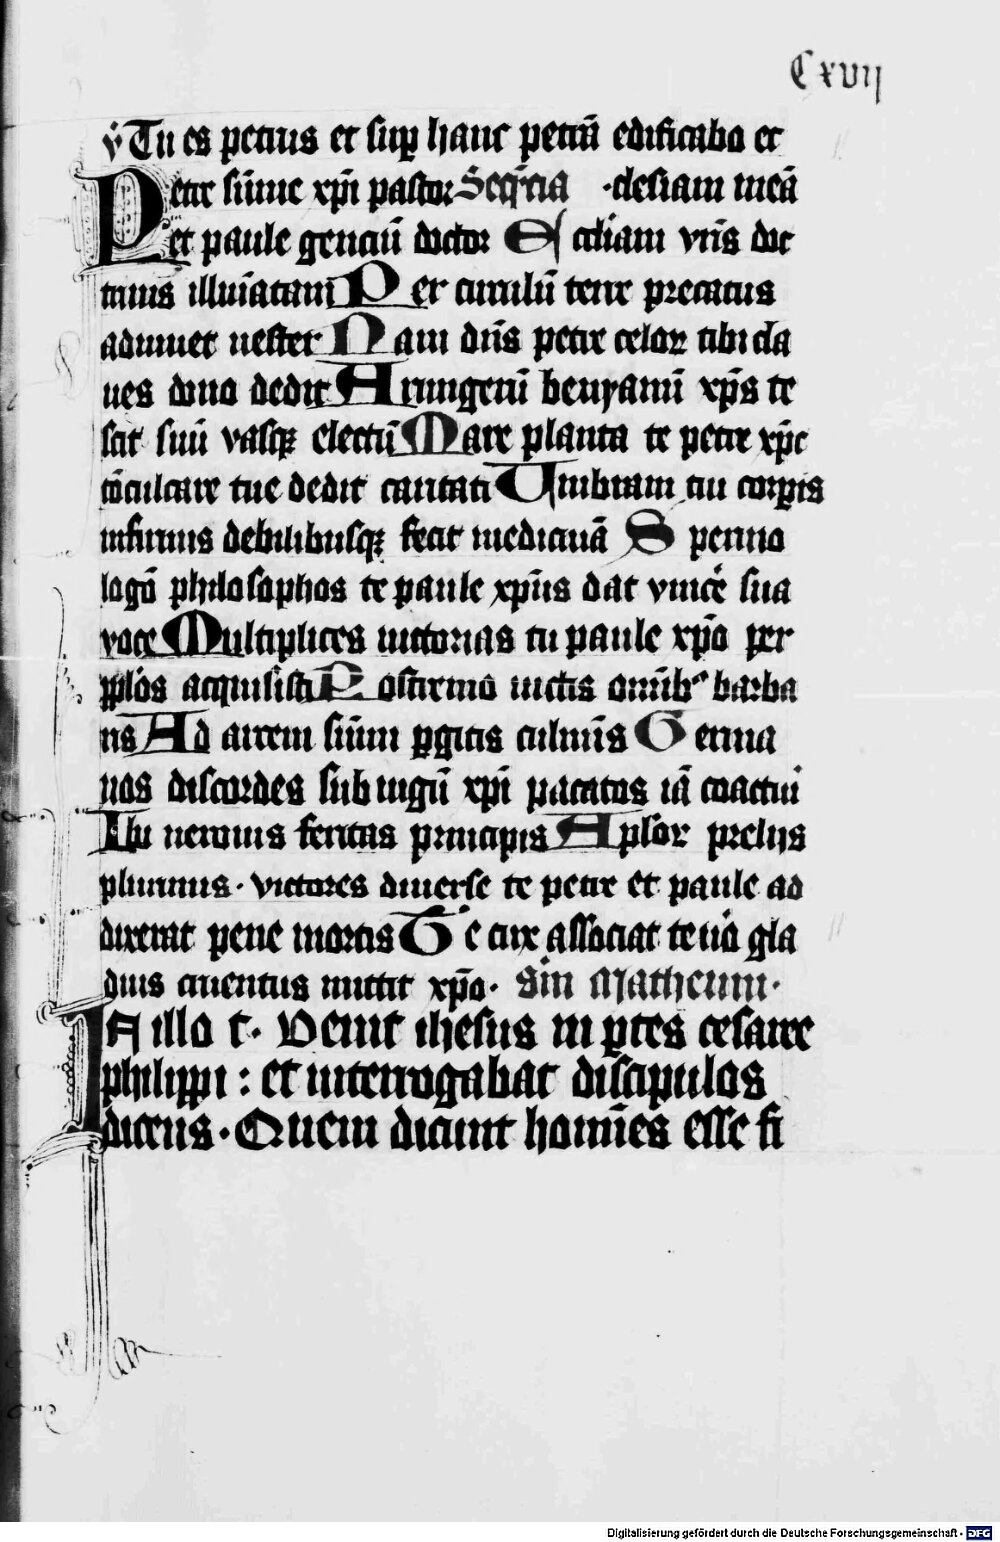 Cxvij
v̄ Tu es petrus et sup hanc petrā edificabo ec
Petre sūme xp̄i pastor Seq̄ncia ·clesiam meā
Et paule genciū doctor Ecc̄liam vr̄is doc
trinis illuīatam Per circulū terre precatus
adiuuet uester Nam dn̄s petre celor tibi cla
ues dono dedit Armigerū benyamī xp̄s te
scit suū vasq; electū Mare planta te petre xp̄c
cōculcare tue dedit caritati Umbram tui corpris
infirmis debilibusq; fecit medicinā Spermo
logō philosophos te paule xp̄us dat vincē sua
voce Multiplices uictorias tu paule xp̄o per
pplos acquisisti Postremo uictis om̄ib; barba
ris Ad arcem sūm pgitis culmīs Germa
nos discordes sub iugū xp̄i pacatos iā coactui
Ubi neronis feritas principis Aplor prelijs
plurimis · victores diuerse te petre et paule ad
dixerat pene mortis Te crux associat te uō gla
dius cruentus mittit xp̄o · Sm Matheum ·
IN illo t · Venit ihesus in ptes cesaree
philippi : et interrogabat discipulos
dicens · Quem dicunt homīes esse fi
Digitalisierung gefördert durch die Deutsche Forschungsgemeinschaft - DFG